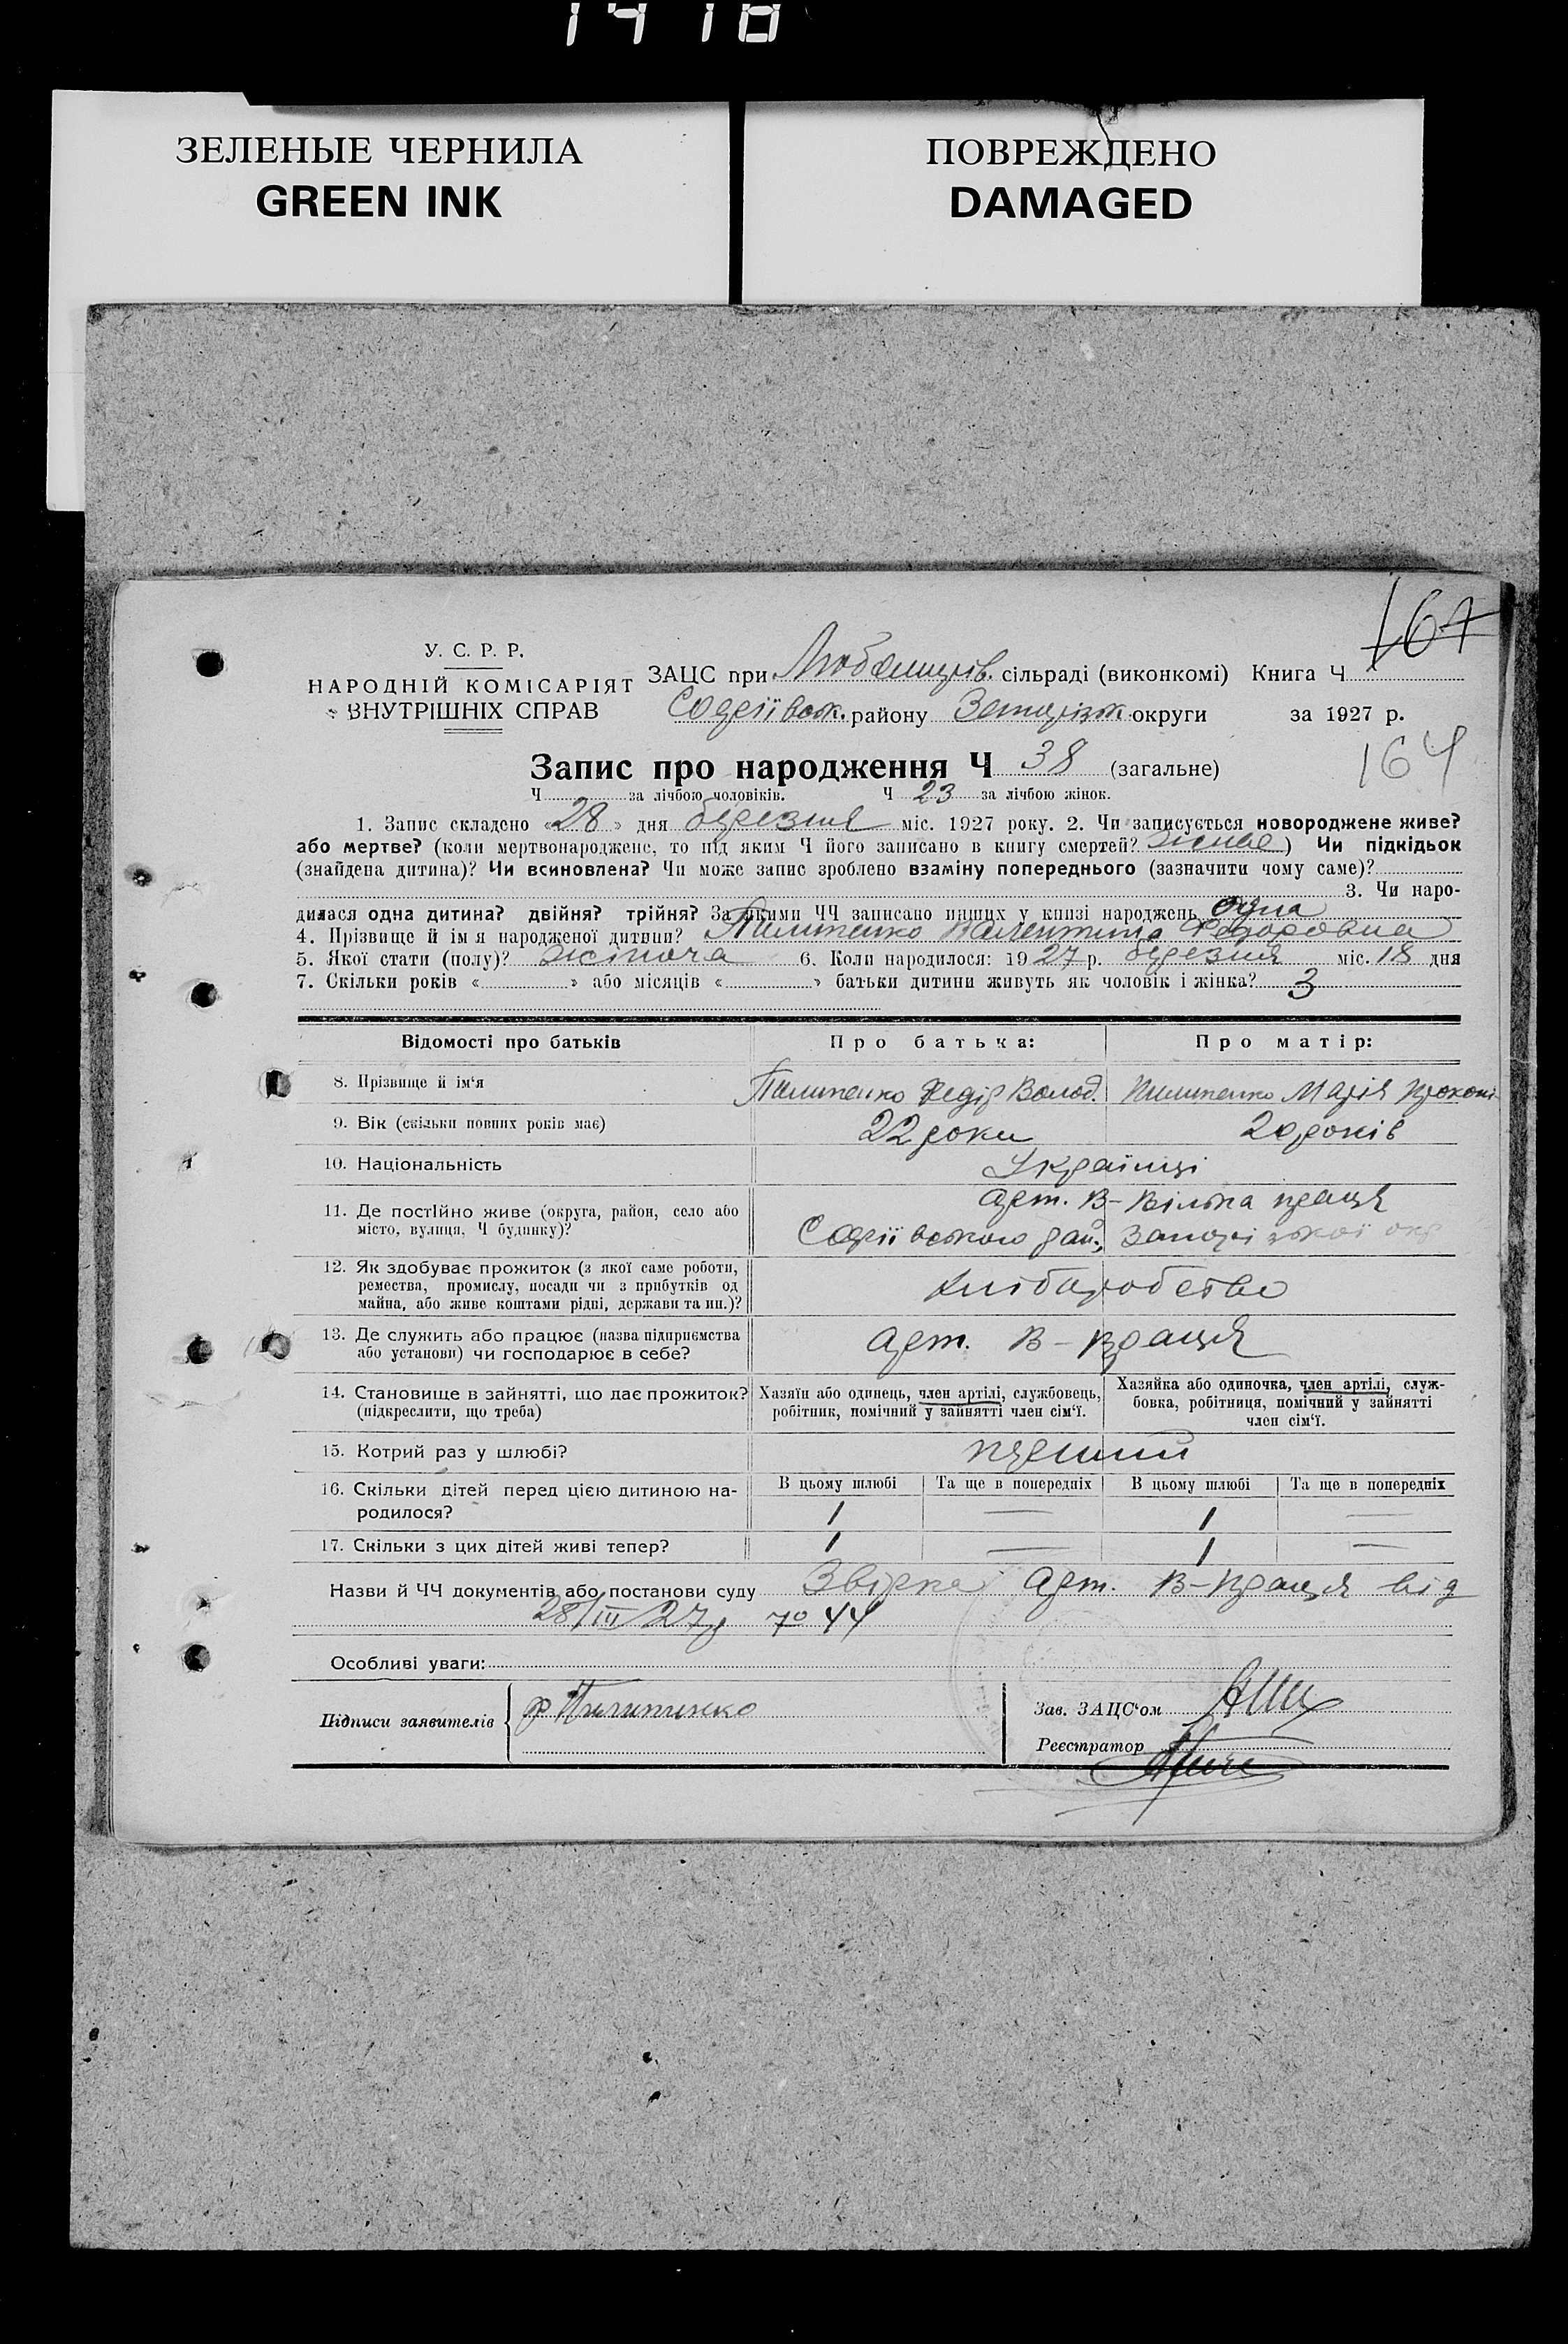 1418
ЗЕЛЕНЫЕ ЧЕРНИЛА
GREEN INK
ПОВРЕЖДЕНО
DAMAGED
167
У. С. Р. Р.
НАРОДНІЙ КОМІСАРІЯТ
ВНУТРІШНІХ СПРАВ
ЗАЦС при сільраді (виконкомі) Книга Ч
району округи за 1927 р.
164
Запис про народження Ч 38 (загальне)
Ч за лічбою чоловіків. Ч 23 за лічбою жінок.
1. Запис складено «28» дня березня міс. 1927 року. 2. Чи записується новороджене живе?
або мертве? (коли мертвонароджене, то під яким Ч його записано в книгу смертей? живе) Чи підкідьок
(знайдена дитина)? Чи всиновлена? Чи може запис зроблено взаміну попереднього (зазначити чому саме)?
3. Чи наро-
дилася одна дитина? двійня? трійня? За якими ЧЧ записано инших у книзі народжень одна
4. Прізвище й ім я народженої дитини? Пилипенко Валентина Федоровна
5. Якої стати (полу)? жіноча 6. Коли народилося: 1927 р. березня міс. 18 дня
7. Скільки років « » або місяців « » батьки дитини живуть як чоловік і жінка? 3
Відомості про батьків Про батька: Про матір:
8. Прізвище й ім‘я Пилипенко Федір Волод. Пилипенко Марія Прокопі
9. Вік (скільки повних років має) 22 роки 20 років
10. Національність Українці
11. Де постійно живе (округа, район, село або
місто, вулиця, Ч будинку)?
арт. В-Вільна праця
12. Як здобуває прожиток (з якої саме роботи,
ремества, промислу, посади чи з прибутків од
майна, або живе коштами рідні, держави та ин.)?
хліборобство
13. Де служить або працює (назва підприємства
або установи) чи господарює в себе?
арт. В-Праця
14. Становище в зайнятті, що дає прожиток?
(підкреслити, що треба)
Хазяїн або одинець, член артілі, службовець,
робітник, помічний у зайнятті член сім‘ї.
Хазяйка або одиночка, член артілі, служ-
бовка, робітниця, помічний у зайнятті
член сім‘ї.
15. Котрий раз у шлюбі? перший
16. Скільки дітей перед цією дитиною на-
родилося?
В цьому шлюбі Та ще в попередніх В цьому шлюбі Та ще в попередніх
1 — 1 —
17. Скільки з цих дітей живі тепер? 1 — 1 —
Назви й ЧЧ документів або постанови суду арт. В-Праця від
28/III 27р 44
Особливі уваги:
Підписи заявителів Ф Пилипенко
Зав. ЗАЦС‘ом
Реєстратор